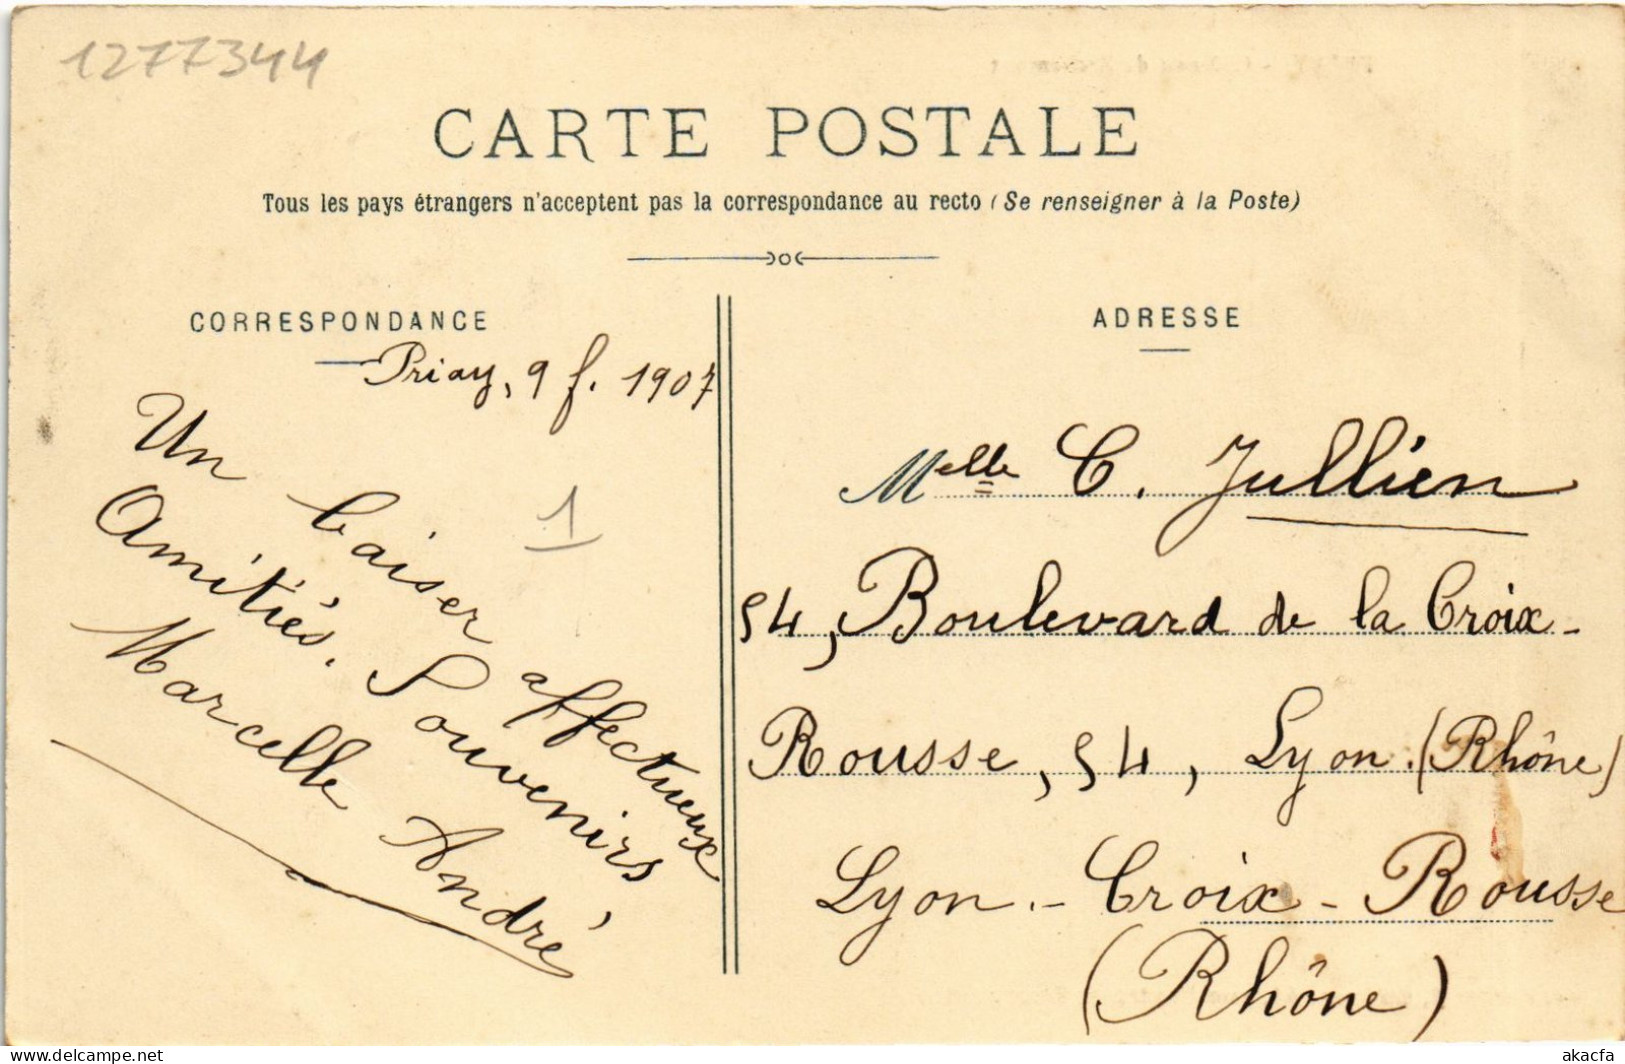 1277344
CARTE POSTALE
Tous les pays étrangers n'acceptent pas la correspondance au recto (Se renseigner à la Poste)
CORRESPONDANCE
Priay, 9 f. 1907
Un baiser affectueux
Amitiés. Souvenirs
Marcelle André
1
ADRESSE
Melle C. Jullien
54, Boulevard de la Croix-
Rousse, 54, Lyon. (Rhône)
Lyon.- Croix-Rousse
(Rhône)
delcampe.net
akacfa